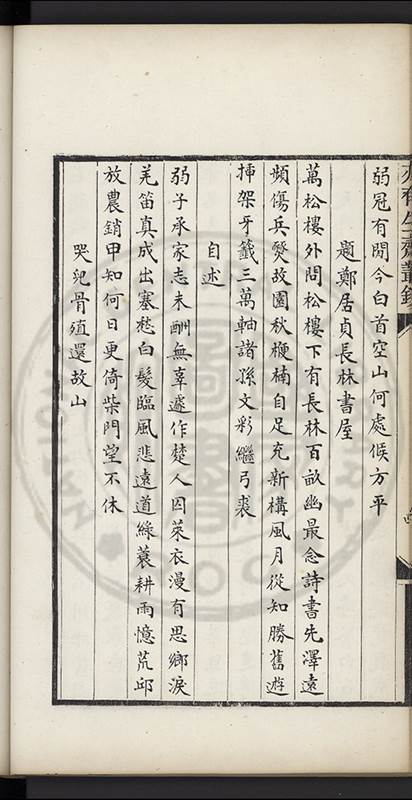 弱冠有聞今白首空山何處候方平
題鄭居貞長林書屋
萬松樓外問松樓下有長林百畝幽最念詩書先澤遠
頻傷兵燹故園秋梗楠自足充新構風月從知勝舊遊
挿架牙籤三萬軸諸孫文彩繼弓裘
自述
弱子承家志未酬無辜遽作楚人囚萊衣漫有思鄉淚
羌笛真成出塞愁白髮臨風悲遠道綠蓑耕雨憶荒邱
放農銷甲知何日更倚柴門望不休
哭兒骨殖還故山